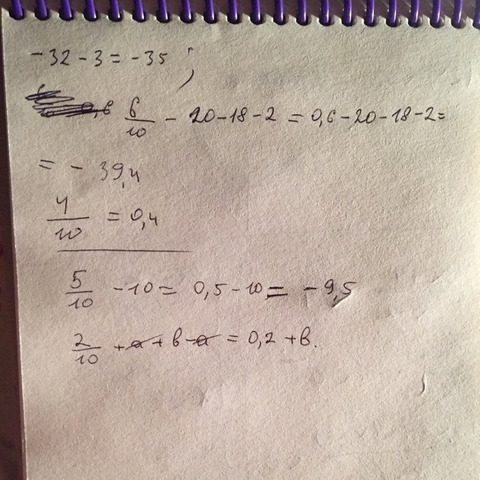 -32 - 3 = -35 ;
6/10 - 20 - 18 - 2 = 0,6 - 20 - 18 - 2 =
= - 39,4
4/10 = 0,4
5/10 - 10 = 0,5 - 10 = - 9,5
2/10 + a + b - a = 0,2 + b.